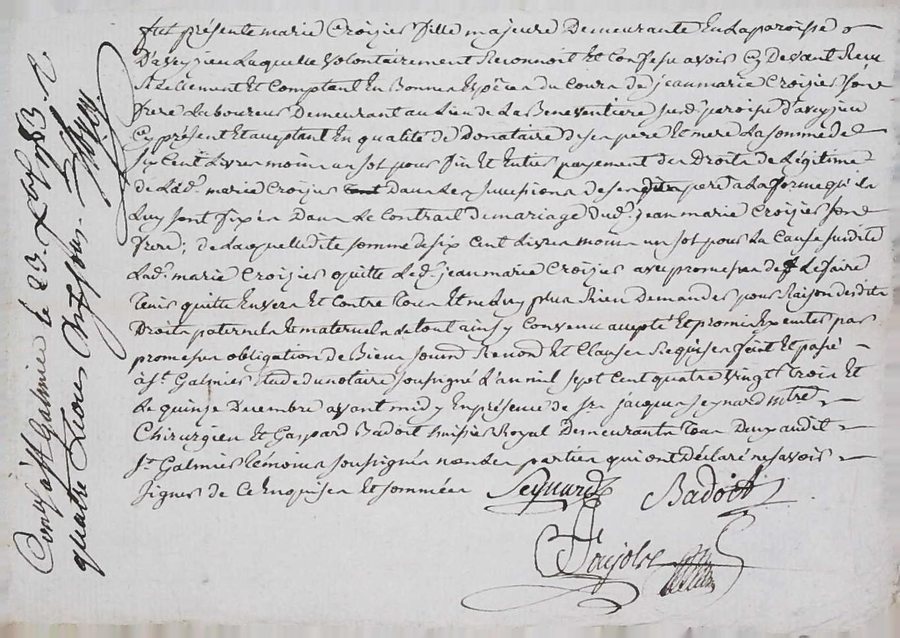 fut présente marie Croizier fille majeure Demeurante En la paroisse
D'aveyzieu Laquelle volontairement Reconnoit Et Confesse avoir Cy Devant Reçu
Réellement et Comptant En Bonnes Espèces du Cours de jeanmarie Croizier son
frere Laboureur Demeurant au Lieu de La Beneventiere susd. paroisse d'aveyzieu
Cy présent Et acceptant En qualité de Donataire de ses pere Et mere La somme de
six Cent Livres moins un sol pour fin Et Entier payement des Droits de Légitime
de Lad. marie Croizier dans Les successions de ses pere a La forme qu'ils
Luy sont fixés Dans Le Contrait de mariage dud. jean marie Croizier son
frere; de Laquelle dite somme de six Cent Livres moins un sol pour La Cause susdite
Lad. marie Croizier quitte Led. jeanmarie Croizier avec promesses de Le faire
tenir quitte Envers Et Contre tous Et ne luy plus Rien Demander pour Raison desdits
Droits paternels Et maternels de tout ainsy Convenu accepté Et promis Executer par
promesses obligation de Biens soumd Renond Et Clauses Requises fait Et passé
à St. Galmier Etude du notaire soussigné L'an mil sept Cent quatre vingt trois Et
Le quinze Decembre avant midy En présence de Srs jacques Seynard mtre
Chirurgien Et Gaspard Badoit huissier Royal Demeurants tous Deux audit
St. Galmier témoins soussignés non Les parties qui ont déclaré ne savoir
signer de Ce Enquises Et sommées Seynard Badoit
Pujolas
Con.lé à St Galmier le 23 Xbre 1783. R.
quatre Livres